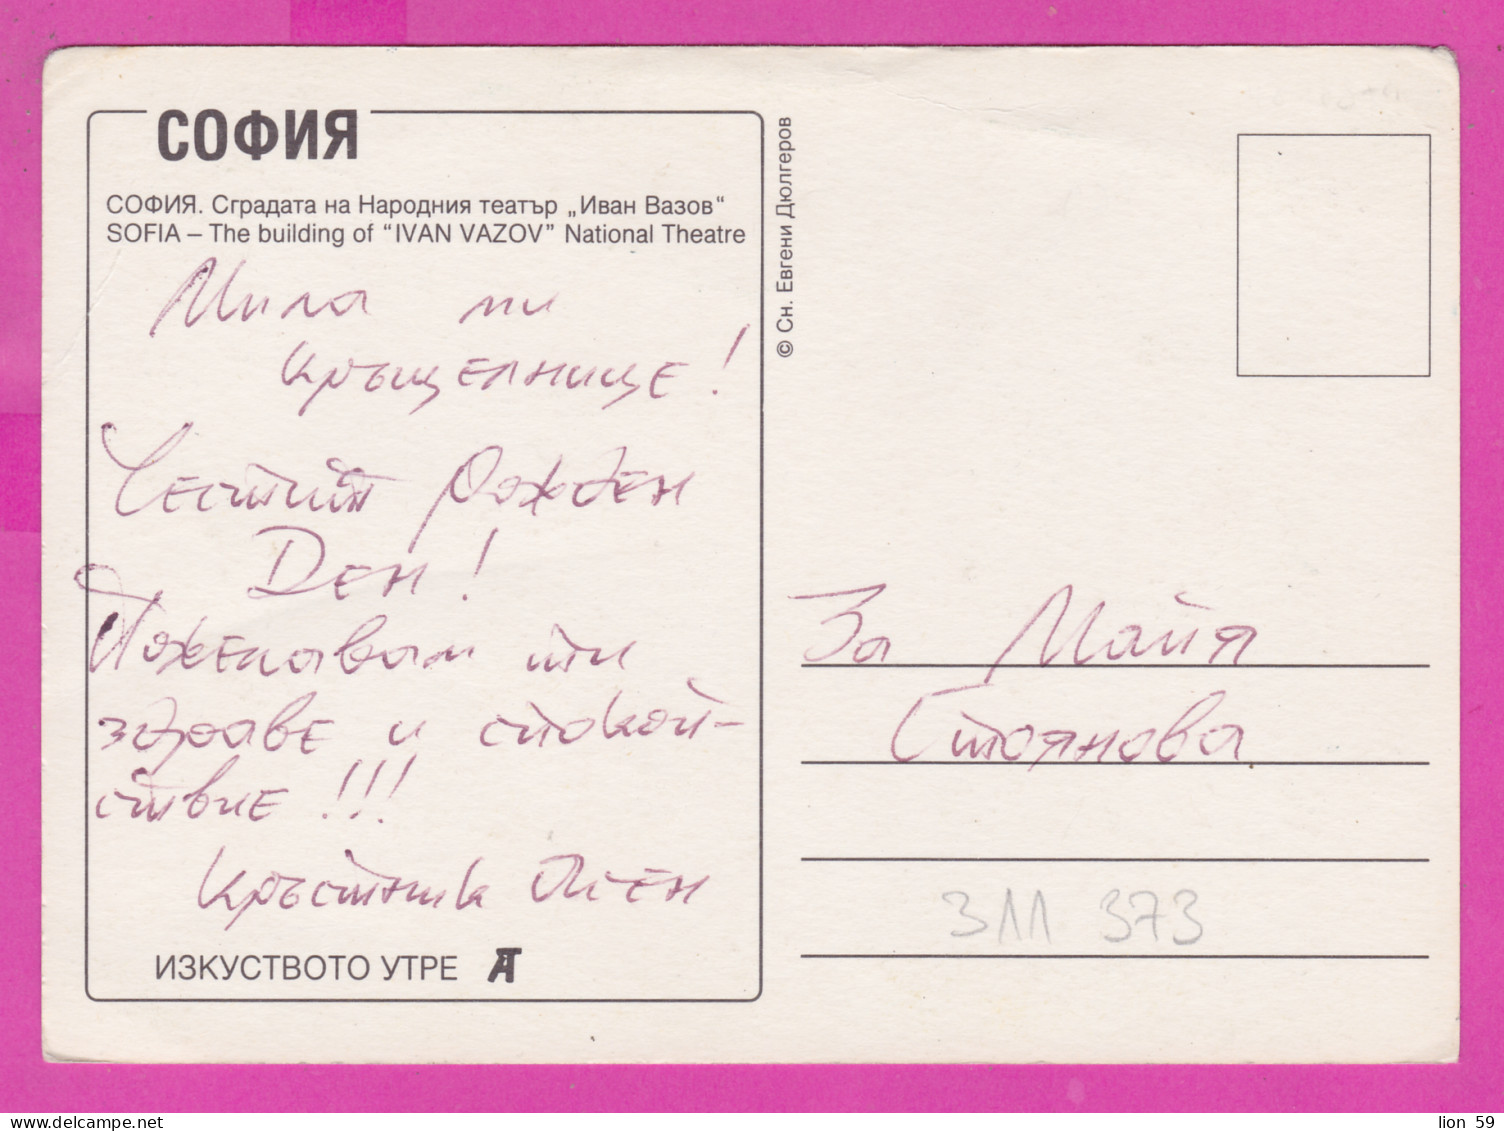 СОФИЯ
СОФИЯ. Сградата на Народния театър „Иван Вазов“
SOFIA – The building of “IVAN VAZOV” National Theatre
Мила ми
кръщелнице!
Честит Рожден
Ден!
Пожелавам ти
здраве и спокой-
ствие!!!
Кръстник Асен
ИЗКУСТВОТО УТРЕ
© Сн. Евгени Дюлгеров
За Майя
Стоянова
311 373
lion 59